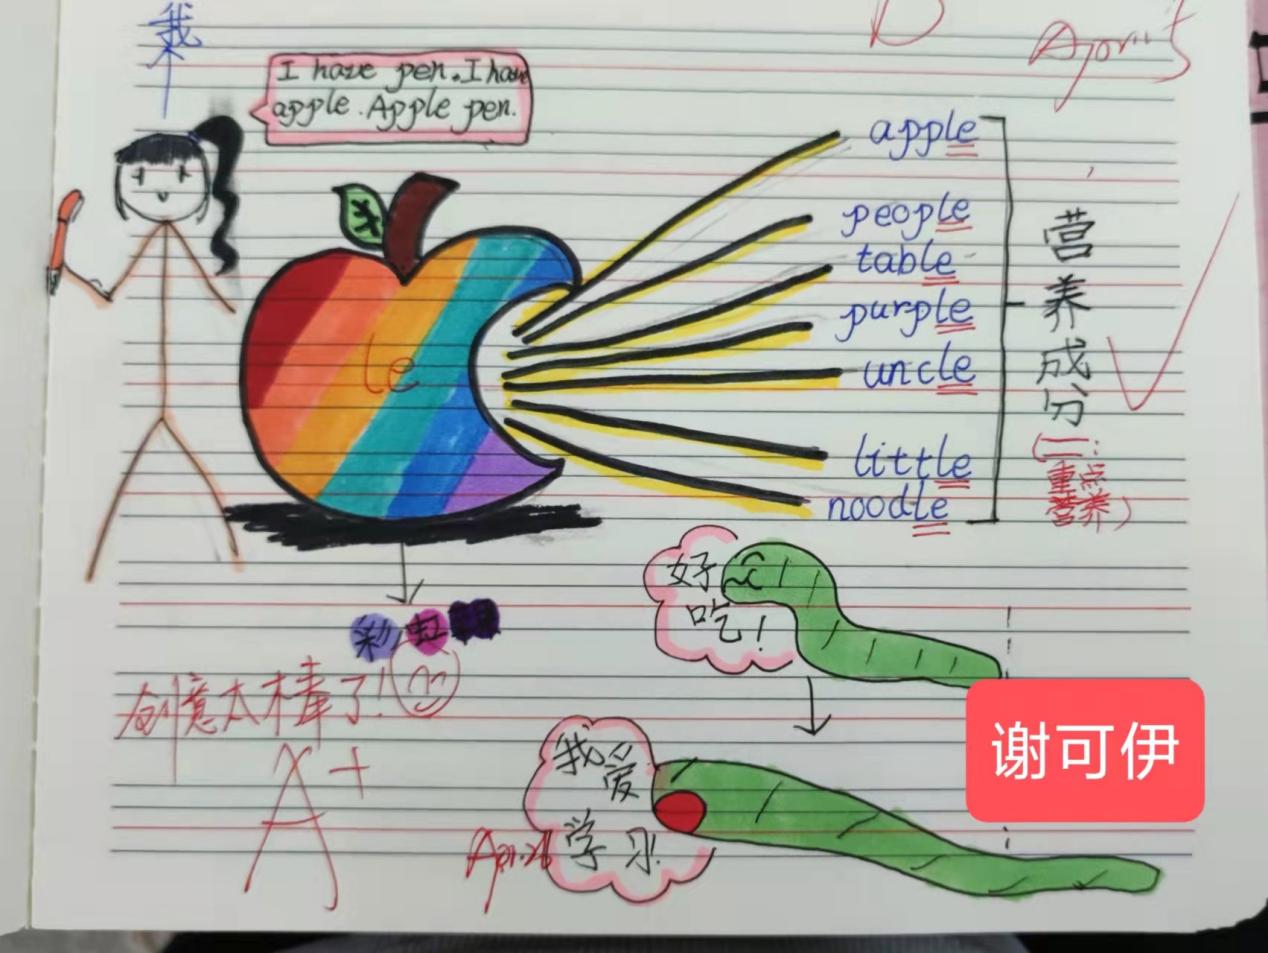 我
I have pen. I have
apple. Apple pen.
apple
people
table
purple
uncle
little
noodle
le
营养成分
(二:
重点
营养)
好
吃!
彩虹
创意太棒了!
A+
我爱
学习!
Apr.26
谢可伊